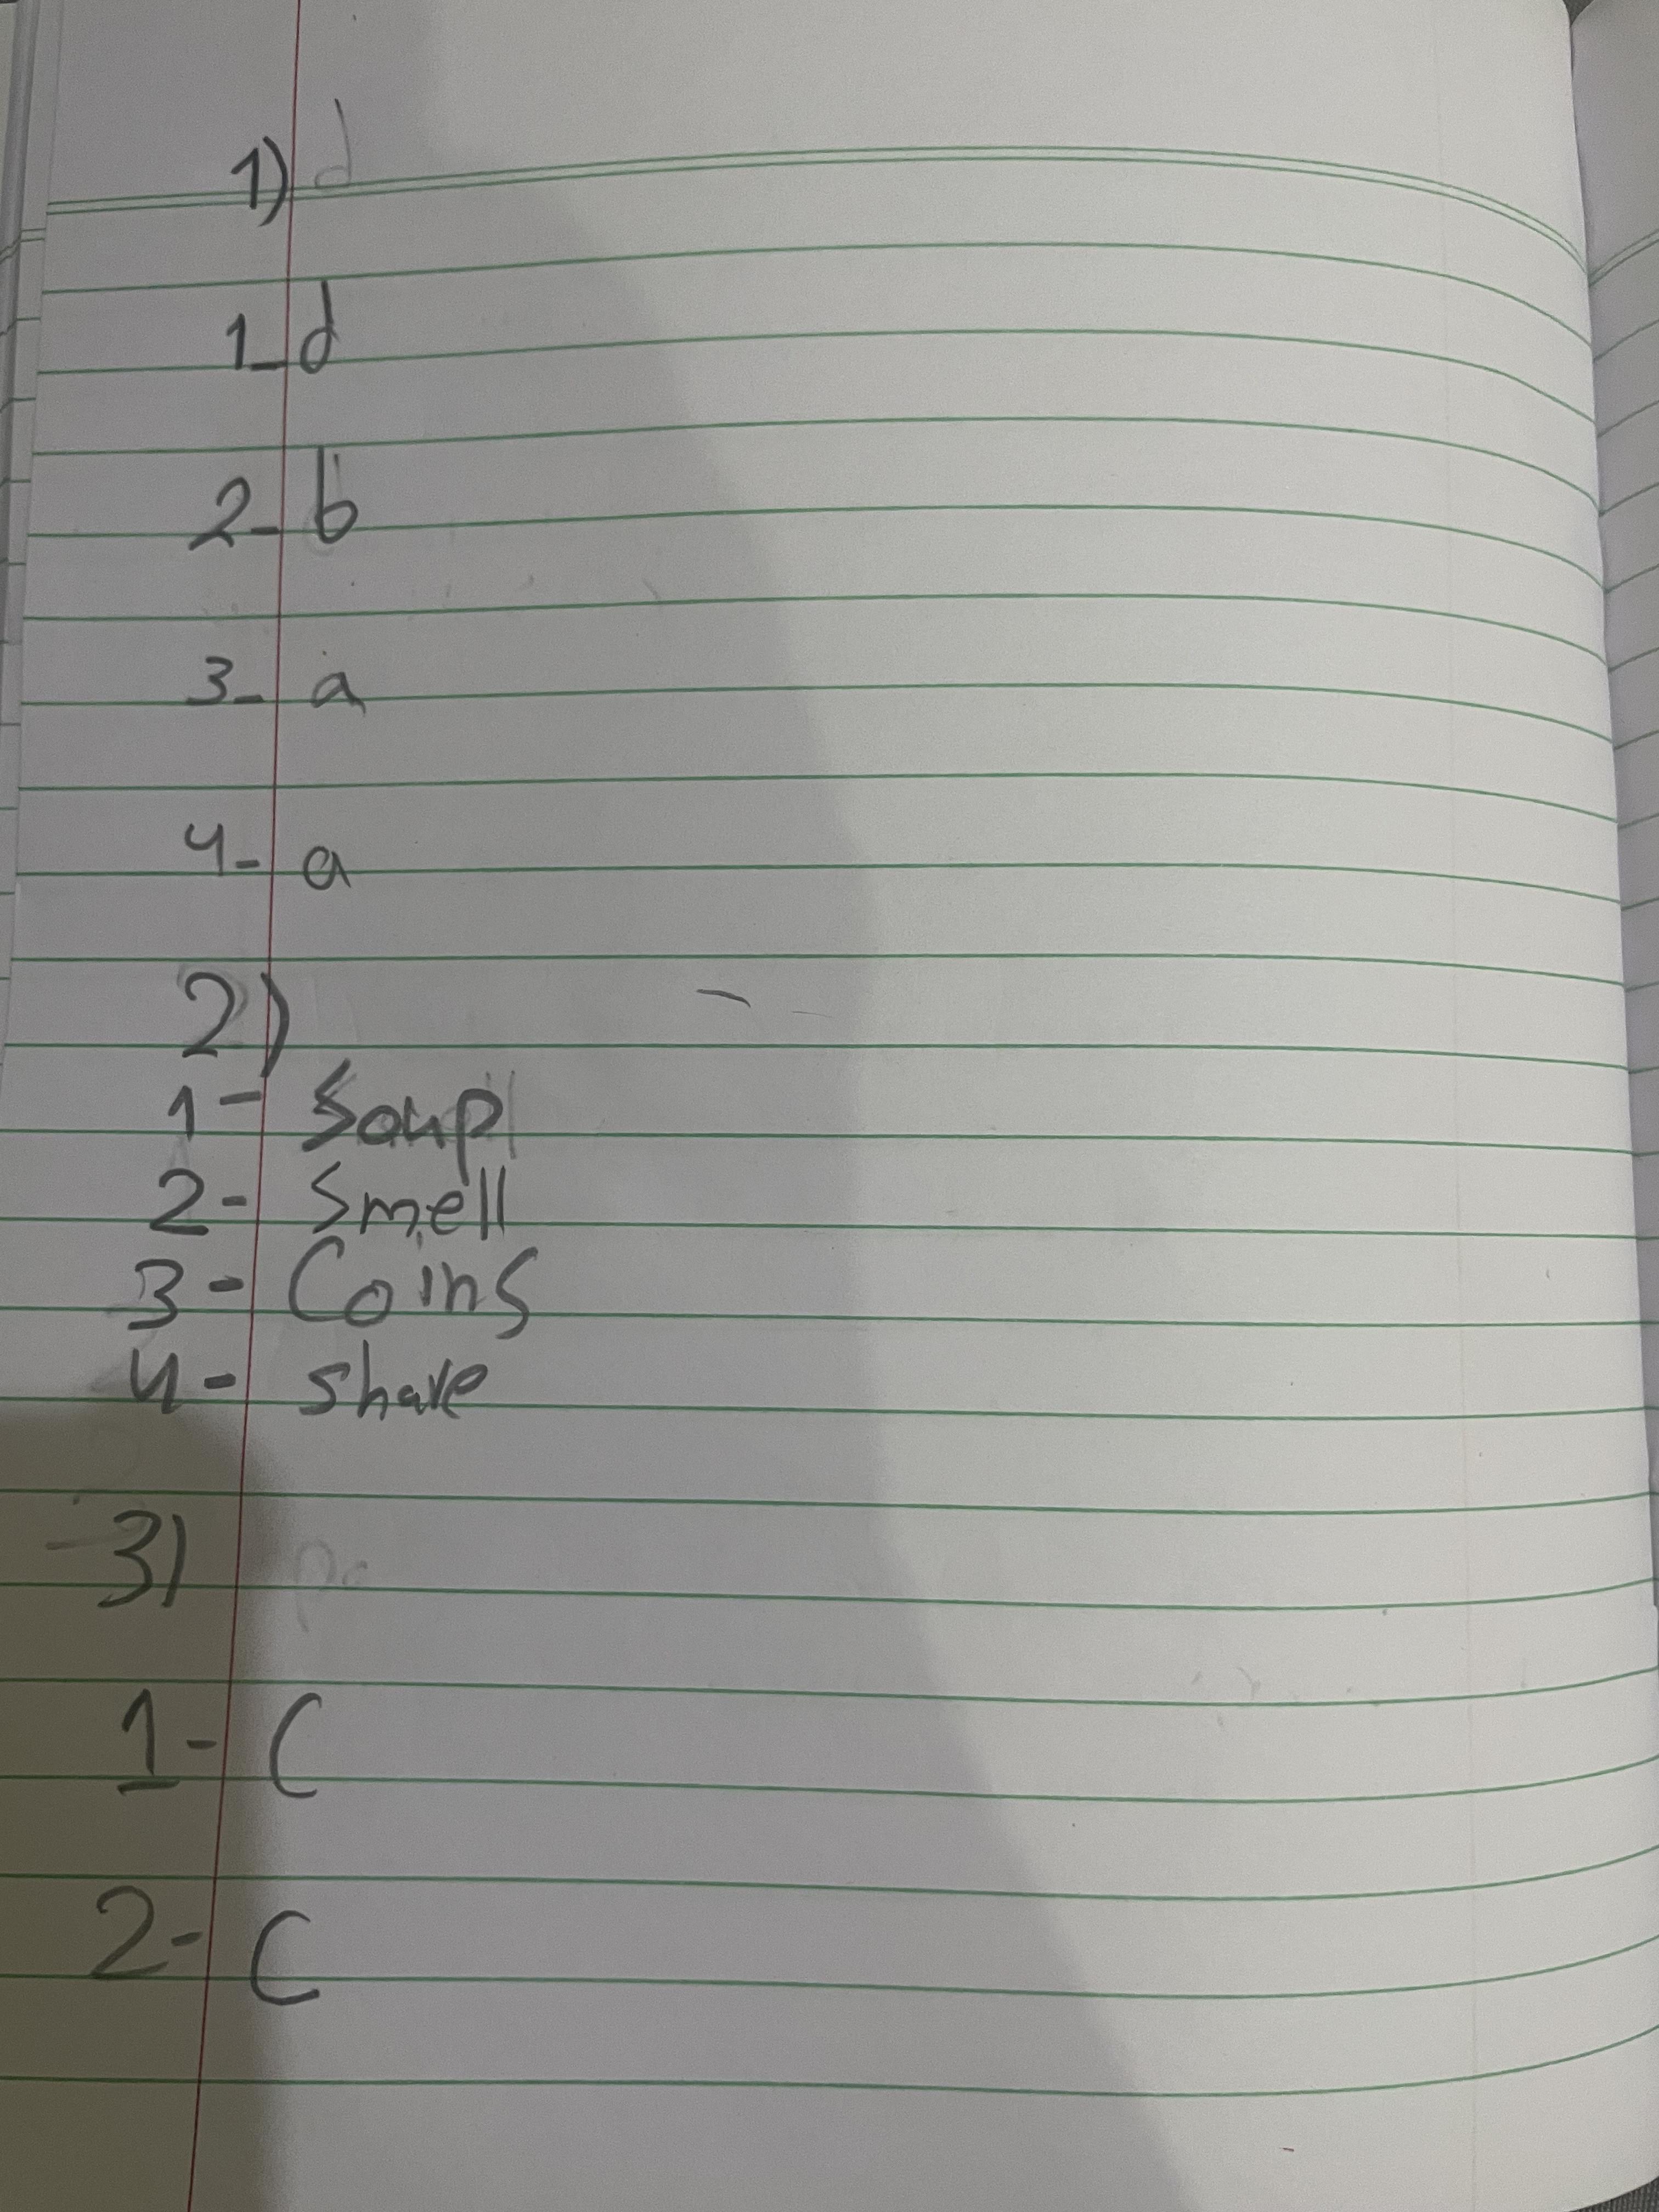 1) d
1_ d
2- b
3- a
4- a
2)
1- Soup
2- Smell
3- Coins
4- share
3)
1- C
2- C